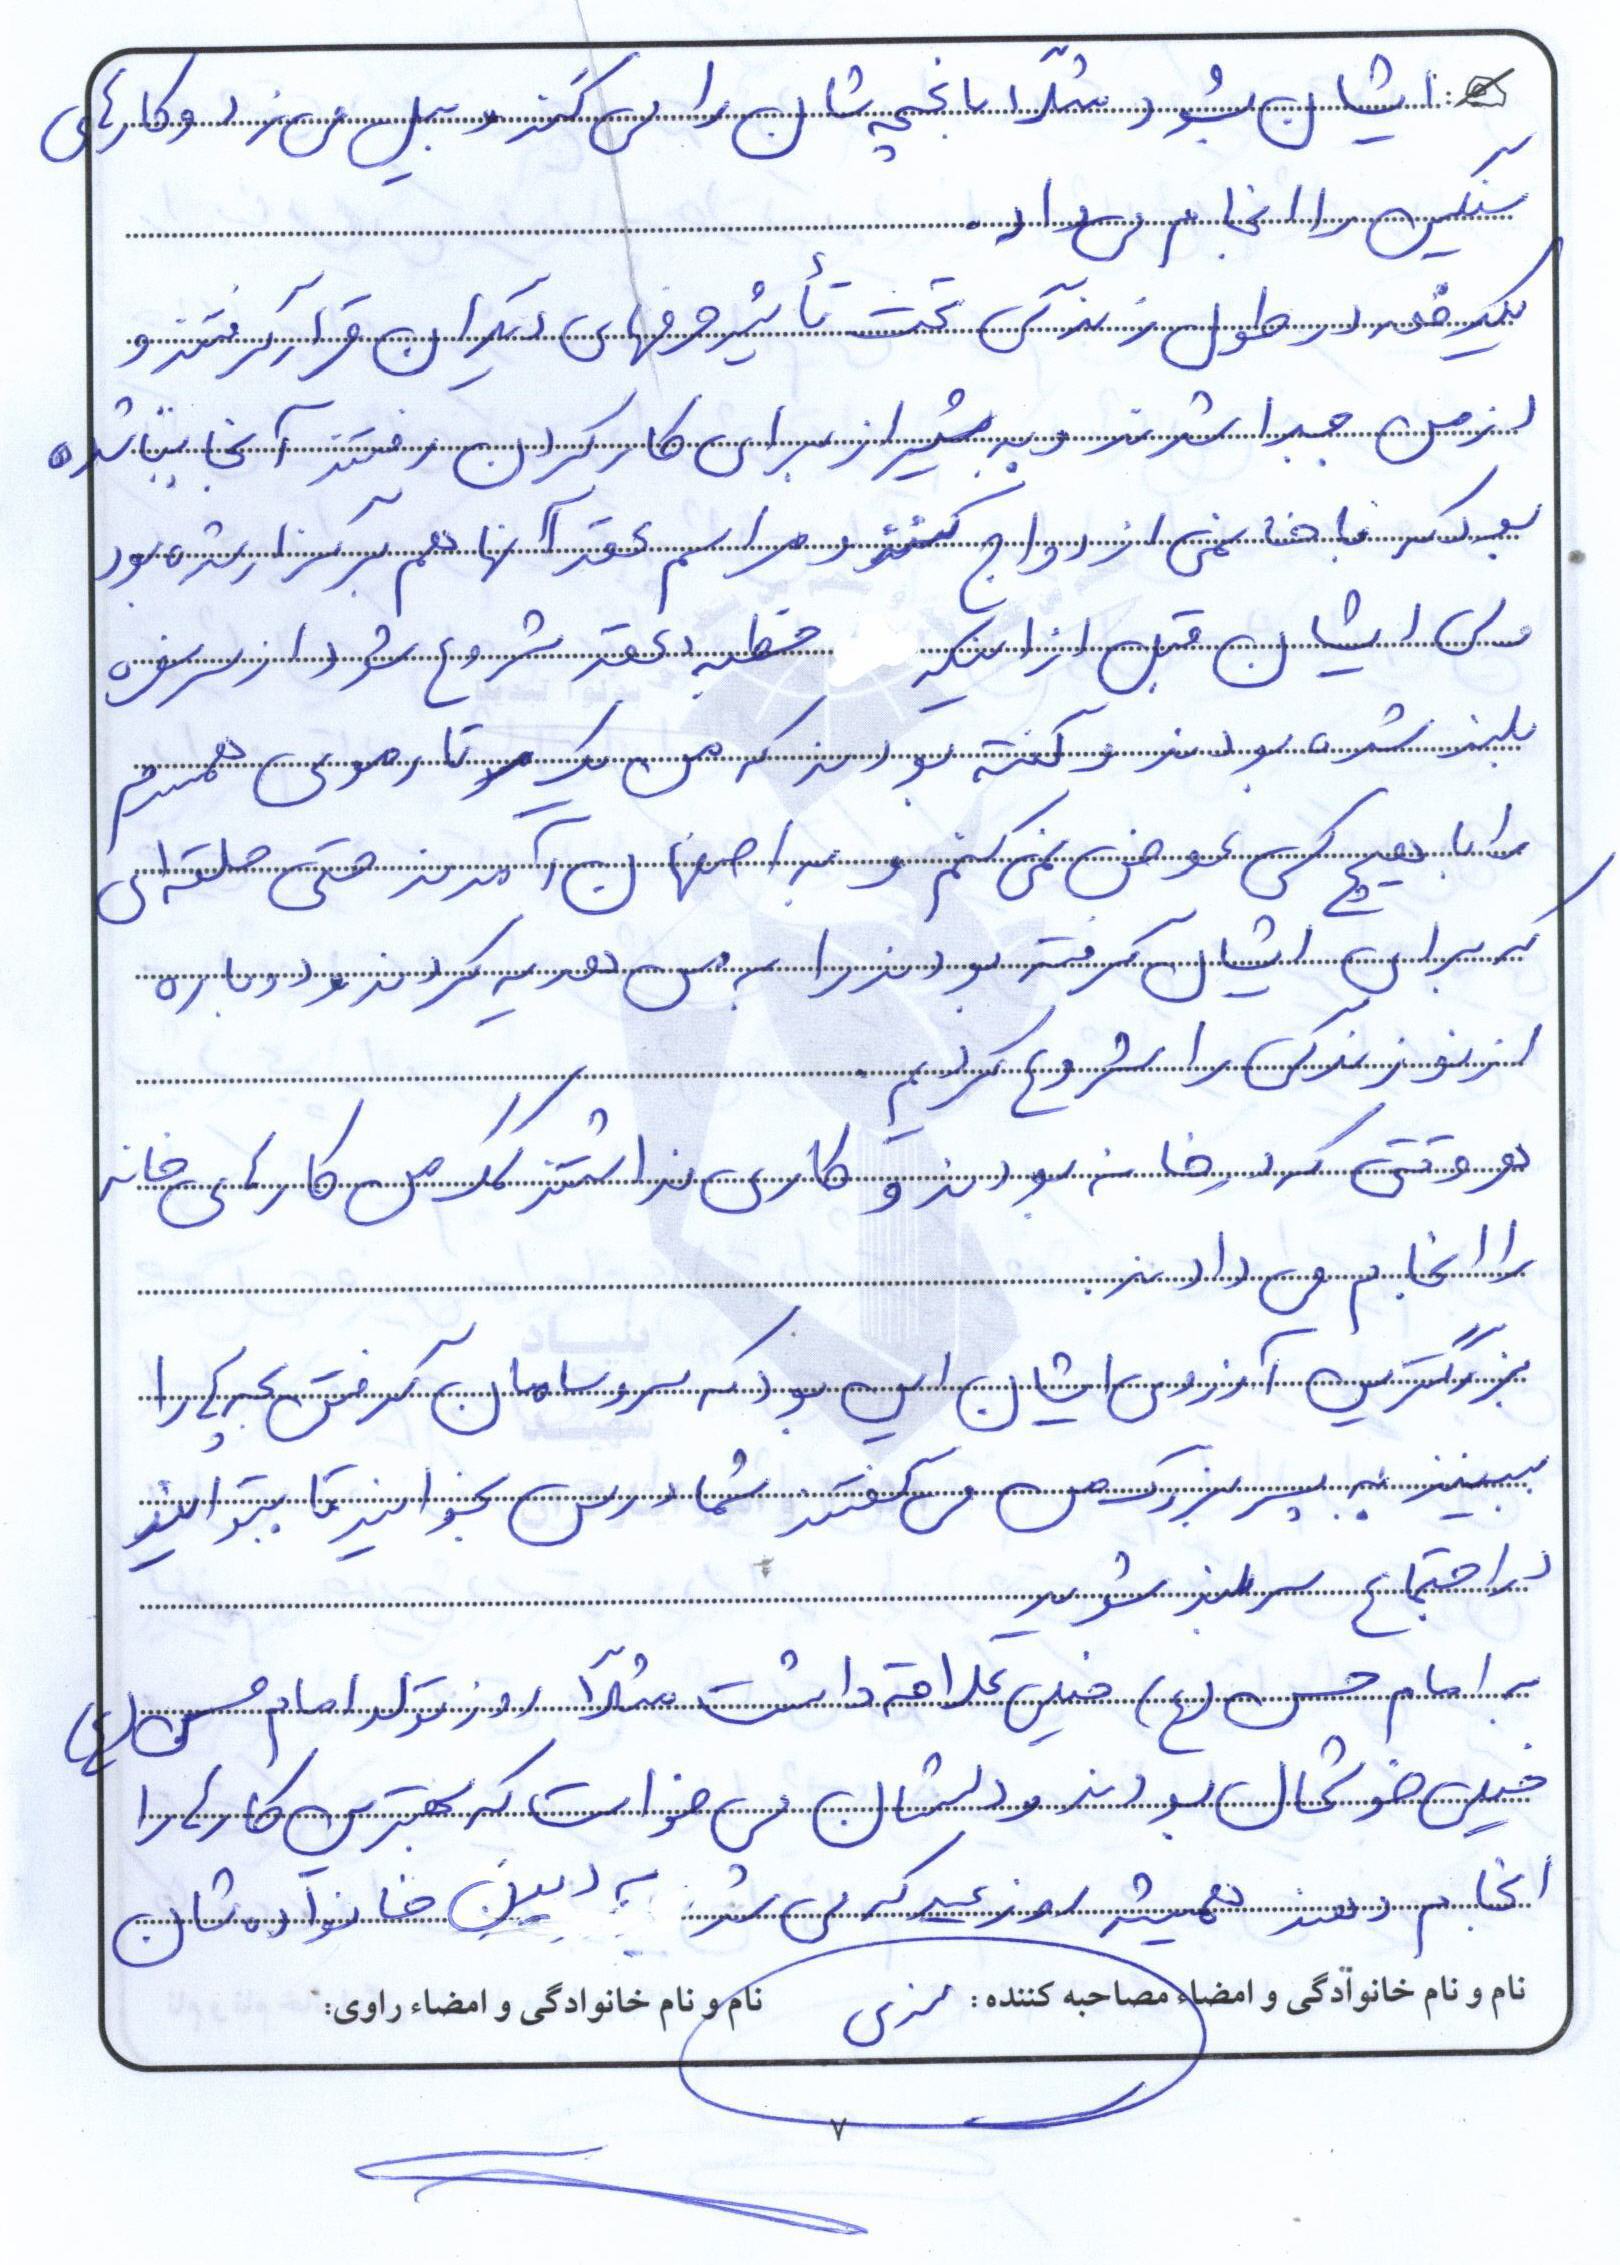 ایشان بشود مثلاً باغچه شان را می کند و بیل می زد و کارهای
سنگین را انجام می داد.
یکدفعه در طول زندگی تحت تأثیر حرفهای دیگران قرار گرفتند و
از من جدا شدند و به شیراز برای کار کردن رفتند آنجا بنا شده
بود که با خانمی ازدواج کنند و مراسم عقد آنها هم برگزار شده بود
ولی ایشان قبل از اینکه خطبه عقد شروع شود از سر سفره
بلند شده بودند و گفته بودند که من یک تار موی همسرم
را با هیچ کسی عوض نمی کنم و به اصفهان آمدند حتی حلقه ای
که برای ایشان گرفته بودند را به من هدیه کردند و دوباره
از نو زندگی را شروع کردیم.
هر وقتی که در خانه بودند و کاری نداشتند کمک من کارهای خانه
را انجام می دادند.
بزرگترین آرزوی ایشان این بود که سر و سامان گرفتن بچه ها را
ببینند به پسر بزرگ من می گفتند شما درس بخوانید تا بتوانید
در اجتماع سربلند شوید
به امام حسن (ع) خیلی علاقه داشت مثلاً روز تولد امام حسن (ع)
خیلی خوشحال بودند و دلشان می خواست که بهترین کارها را
انجام دهند همیشه روز عید که می شد به دیدن خانواده شان
نام و نام خانوادگی و امضاء مصاحبه کننده:
نام و نام خانوادگی و امضاء راوی:
۷
بنیاد
شهید